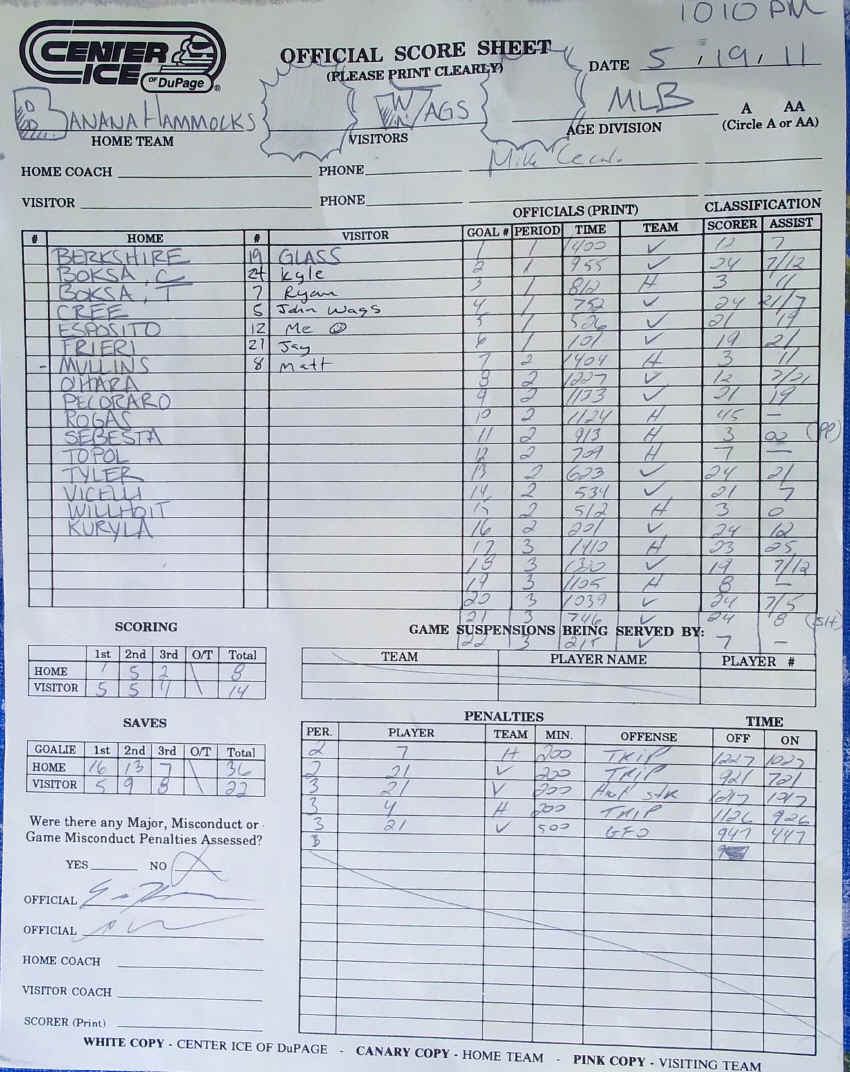 1010 PM
CENTER ICE OF DuPage ®
OFFICIAL SCORE SHEET
(PLEASE PRINT CLEARLY)
DATE 5 / 19 / 11
BANANA HAMMOCKS WAGS MLB A AA
HOME TEAM VISITORS AGE DIVISION (Circle A or AA)
HOME COACH PHONE Mike
VISITOR PHONE
OFFICIALS (PRINT) CLASSIFICATION
# HOME # VISITOR GOAL # PERIOD TIME TEAM SCORER ASSIST
BERKSHIRE 19 GLASS 1 1 1400 V 12 7
BOKSA, C 24 Kyle 2 1 955 V 24 7/12
BOKSA, T 7 Ryan 3 1 812 H 3 11
CREE 5 John Wags 4 1 752 V 24 21/7
ESPOSITO 12 Me 5 1 526 V 21 19
FRIERI 21 Jay 6 1 101 V 19 21
- MULLINS 8 Matt 7 2 1404 H 3 11
O'HARA 8 2 1227 V 12 7/21
PECORARO 9 2 1123 V 21 19
ROGAS 10 2 1124 H 45 —
SEBESTA 11 2 913 H 3 02 (PP)
TOPOL 12 2 709 H 7 —
TYLER 13 2 623 V 24 21
VICELLI 14 2 534 V 21 7
WILLHOIT 15 2 512 H 3 0
KURYLA 16 2 201 V 24 12
17 3 1410 H 23 25
18 3 1320 V 19 7/12
19 3 1105 H 8 —
20 3 1039 V 24 7/5
21 3 746 V 24 8 (SH)
22 3 215 V 7 —
SCORING
1st 2nd 3rd O/T Total
HOME 1 5 2 \ 8
VISITOR 5 5 4 \ 14
GAME SUSPENSIONS BEING SERVED BY:
TEAM PLAYER NAME PLAYER #
SAVES
GOALIE 1st 2nd 3rd O/T Total
HOME 16 13 7 \ 36
VISITOR 5 9 8 \ 22
PENALTIES TIME
PER. PLAYER TEAM MIN. OFFENSE OFF ON
2 7 H 200 TRIP 1227 1027
2 21 V 200 TRIP 921 721
3 21 V 200 1217 1017
3 4 H 200 TRIP 1126 926
3 21 V 500 947 447
3
Were there any Major, Misconduct or
Game Misconduct Penalties Assessed?
YES NO X
OFFICIAL
OFFICIAL
HOME COACH
VISITOR COACH
SCORER (Print)
WHITE COPY - CENTER ICE OF DuPAGE - CANARY COPY - HOME TEAM - PINK COPY - VISITING TEAM